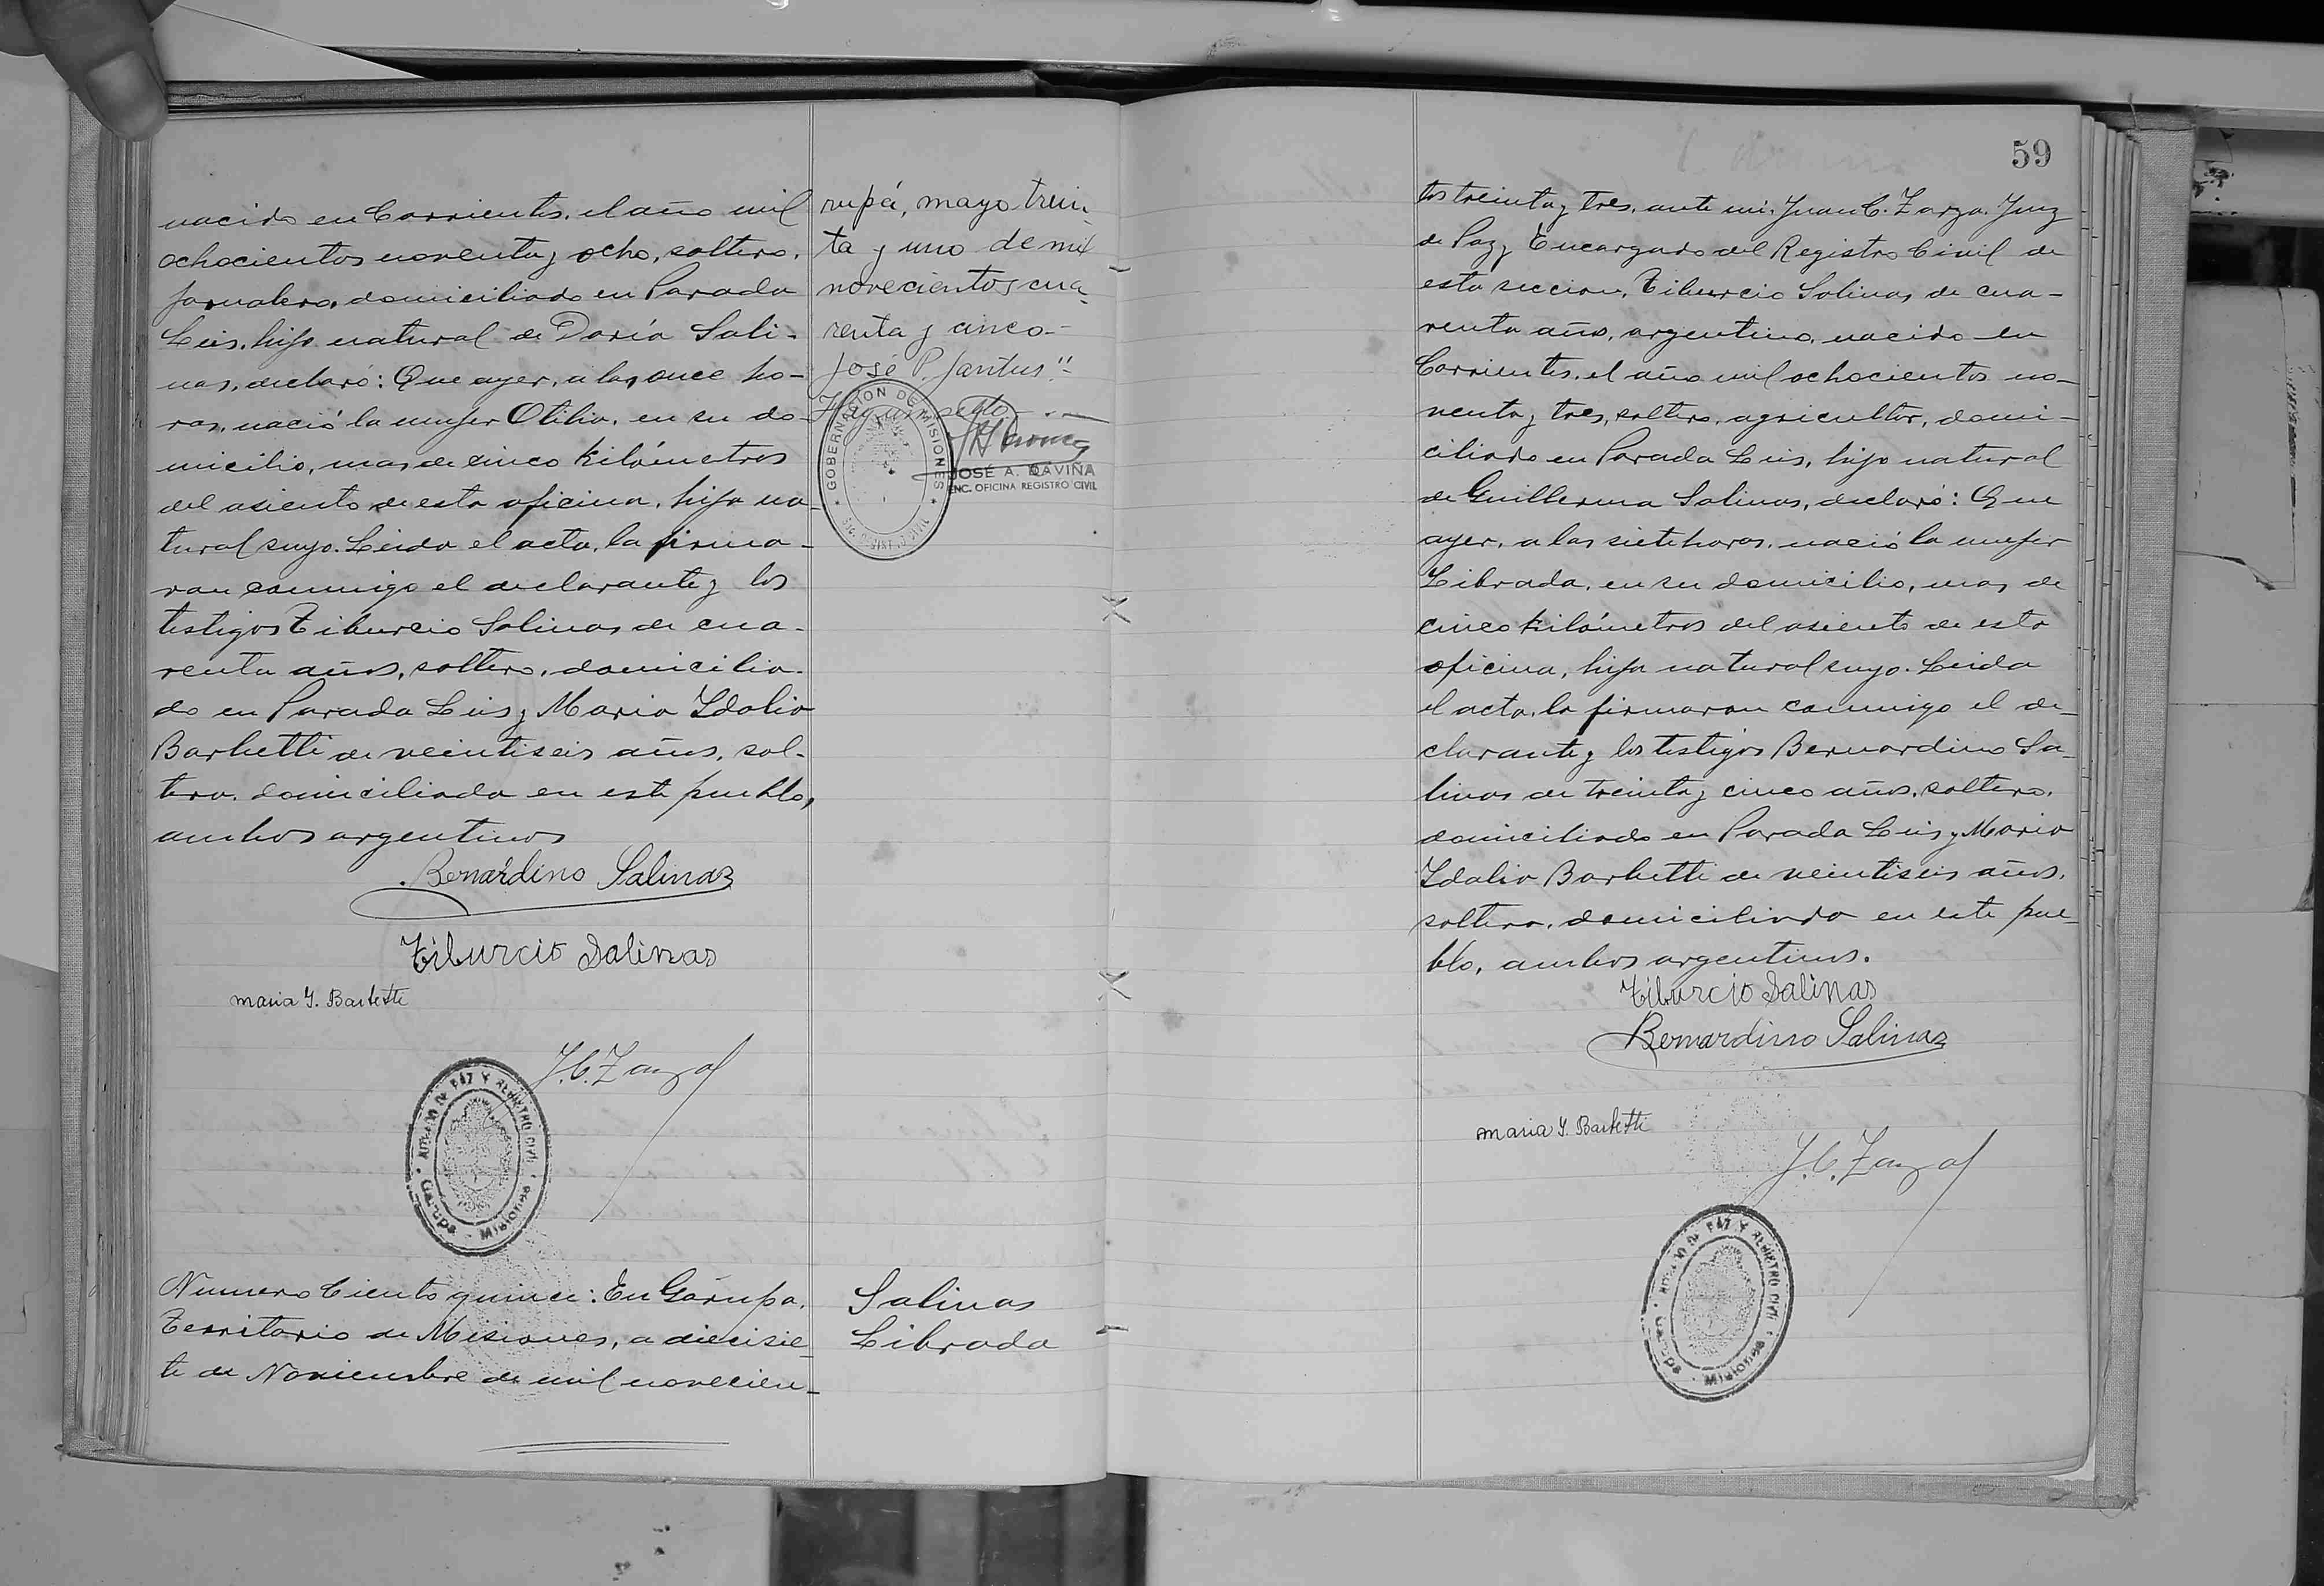 nacido en Corrientes, el año mil
ochocientos noventa y ocho, soltero,
jornalero, domiciliado en Parada
Leis, hijo natural de Daría Sali-
nas, declaró: Que ayer, a las once ho-
ras, nació la mujer Otilia, en su do-
micilio, mas de cinco kilómetros
del asiento de esta oficina, hija na-
tural suya. Leida el acta, la firma-
ron conmigo el declarante y los
testigos Tiburcio Salinas de cua-
renta años, soltero, domicilia-
do en Parada Leis y Maria Idalia
Barbetti de veintiseis años, sol-
tera, domiciliada en este pueblo,
ambos argentinos
Bernárdino Salinas
Tiburcio Salinas
maria Y. Barbetti
J. C. Zarza
JUZGADO DE PAZ Y REGISTRO CIVIL
Garupá - Misiones
Numero Ciento quince: En Garupá,
Territorio de Misiones, a diecisie-
te de Noviembre de mil novecien-
rupá, mayo trein-
ta y uno de mil
novecientos cua-
renta y cinco.-
José P. Jantus".-
GOBERNACION DE MISIONES
JOSÉ A. DAVIÑA
ENC. OFICINA REGISTRO CIVIL
Salinas
Librada
59
tos treinta y tres, ante mi, Juan C. Zarza, Juez
de Paz y Encargado del Registro Civil de
esta seccion, Tiburcio Salinas de cua-
renta años, argentino, nacido en
Corrientes, el año mil ochocientos no-
venta y tres, soltero, agricultor, domi-
ciliado en Parada Leis, hijo natural
de Guillerma Salinas, declaró: Que
ayer, a las siete horas, nació la mujer
Librada, en su domicilio, mas de
cinco kilómetros del asiento de esta
oficina, hija natural suya. Leida
el acta, la firmaron conmigo el de-
clarante y los testigos Bernardino Sa-
linas de treinta y cinco años, soltero,
domiciliado en Parada Leis y Maria
Idalia Barbetti de veintiseis años,
soltera, domiciliada en este pue-
blo, ambos argentinos.
Tiburcio Salinas
Bernardino Salinas
maria Y. Barbetti
J. C. Zarza
JUZGADO DE PAZ Y REGISTRO CIVIL
Garupá - Misiones